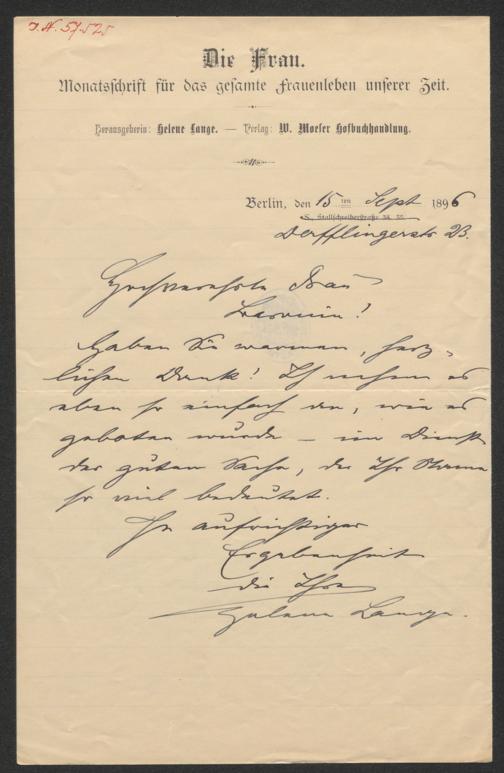 J.N. 57.525
Die Frau.
Monatsschrift für das gesamte Frauenleben unserer Zeit.
Herausgeberin: Helene Lange. — Verlag: W. Moeser Hofbuchhandlung.
Berlin, den 15ten Sept 1896
S., Stallschreiberstraße 34. 35.
Derfflingerstr 23.
Hochverehrte Frau
Baronin!
Haben Sie warmen, herz-
lichen Dank! Ich nehme es
eben so einfach an, wie es
geboten wurde – im Dienst
der guten Sache, der Ihr Name
so viel bedeutet.
In aufrichtiger
Ergebenheit
die Ihre
Helene Lange.